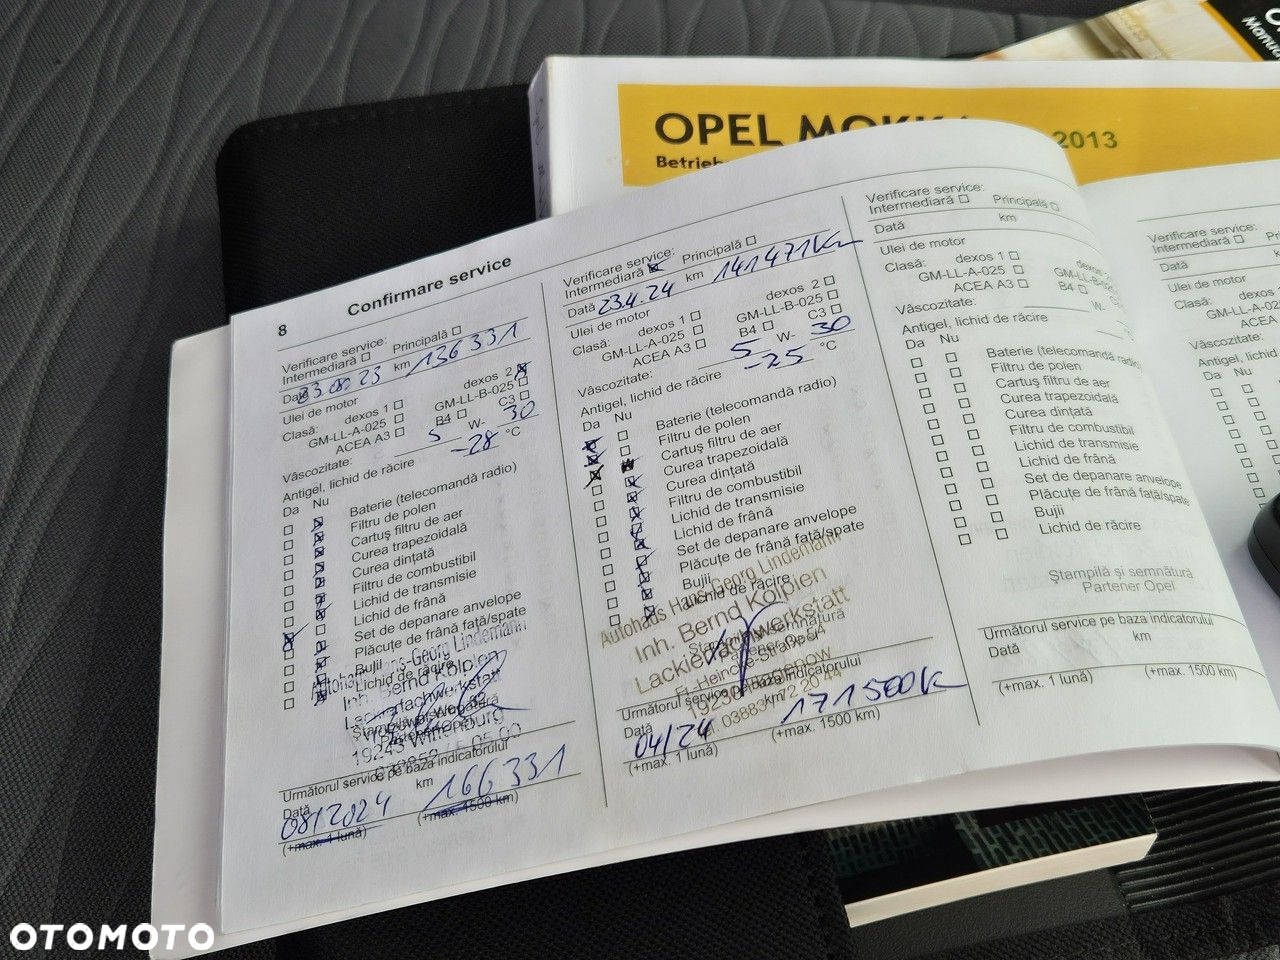 OPEL MOKKA
2013
Manua
8
Confirmare service
Verificare service:
Intermediară Principală
Dată 23.08.23 km 136 331
Ulei de motor
Clasă: dexos 1 dexos 2
GM-LL-A-025 GM-LL-B-025
ACEA A3 B4 C3
Vâscozitate: 5 W- 30
Antigel, lichid de răcire -28 °C
Da Nu
Baterie (telecomandă radio)
Filtru de polen
Cartuș filtru de aer
Curea trapezoidală
Curea dințată
Filtru de combustibil
Lichid de transmisie
Lichid de frână
Set de depanare anvelope
Plăcuțe de frână față/spate
Bujii
Lichid de răcire
Autohaus Hans-Georg Lindemann
Inh. Bernd Kölpien
Lackierfachwerkstatt
19243 Wittenburg
Următorul service pe baza indicatorului
Dată km
08/2024 166 331
(+max. 1 lună) (+max. 1500 km)
Verificare service:
Intermediară Principală
Dată 23.4.24 km 141 471 Km
Ulei de motor
Clasă: dexos 1 dexos 2
GM-LL-A-025 GM-LL-B-025
ACEA A3 B4 C3
Vâscozitate: 5 W- 30
Antigel, lichid de răcire -25 °C
Da Nu
Baterie (telecomandă radio)
Filtru de polen
Cartuș filtru de aer
Curea trapezoidală
Curea dințată
Filtru de combustibil
Lichid de transmisie
Lichid de frână
Set de depanare anvelope
Plăcuțe de frână față/spate
Bujii
Lichid de răcire
Autohaus Hans-Georg Lindemann
Inh. Bernd Kölpien
Lackierfachwerkstatt
Ștampilă și semnătură
Partener Opel
Următorul service pe baza indicatorului
Dată km
04/24 171 500 K
(+max. 1 lună) (+max. 1500 km)
Verificare service:
Intermediară Principală
Dată km
Ulei de motor
Clasă: dexos 1 dexos
GM-LL-A-025
ACEA A3 B4
Vâscozitate: W-
Antigel, lichid de răcire
Da Nu
Baterie (telecomandă radio
Filtru de polen
Cartuș filtru de aer
Curea trapezoidală
Curea dințată
Filtru de combustibil
Lichid de transmisie
Lichid de frână
Set de depanare anvelope
Plăcuțe de frână față/spate
Bujii
Lichid de răcire
Ștampilă și semnătură
Partener Opel
Următorul service pe baza indicatorului
Dată km
(+max. 1 lună) (+max. 1500 km)
Verificare service:
Intermediară
Dată
Ulei de motor
Clasă: dexos
GM-LL-A-02
ACEA
Vâscozitate:
Antigel, lichid de
Da Nu
OTOMOTO